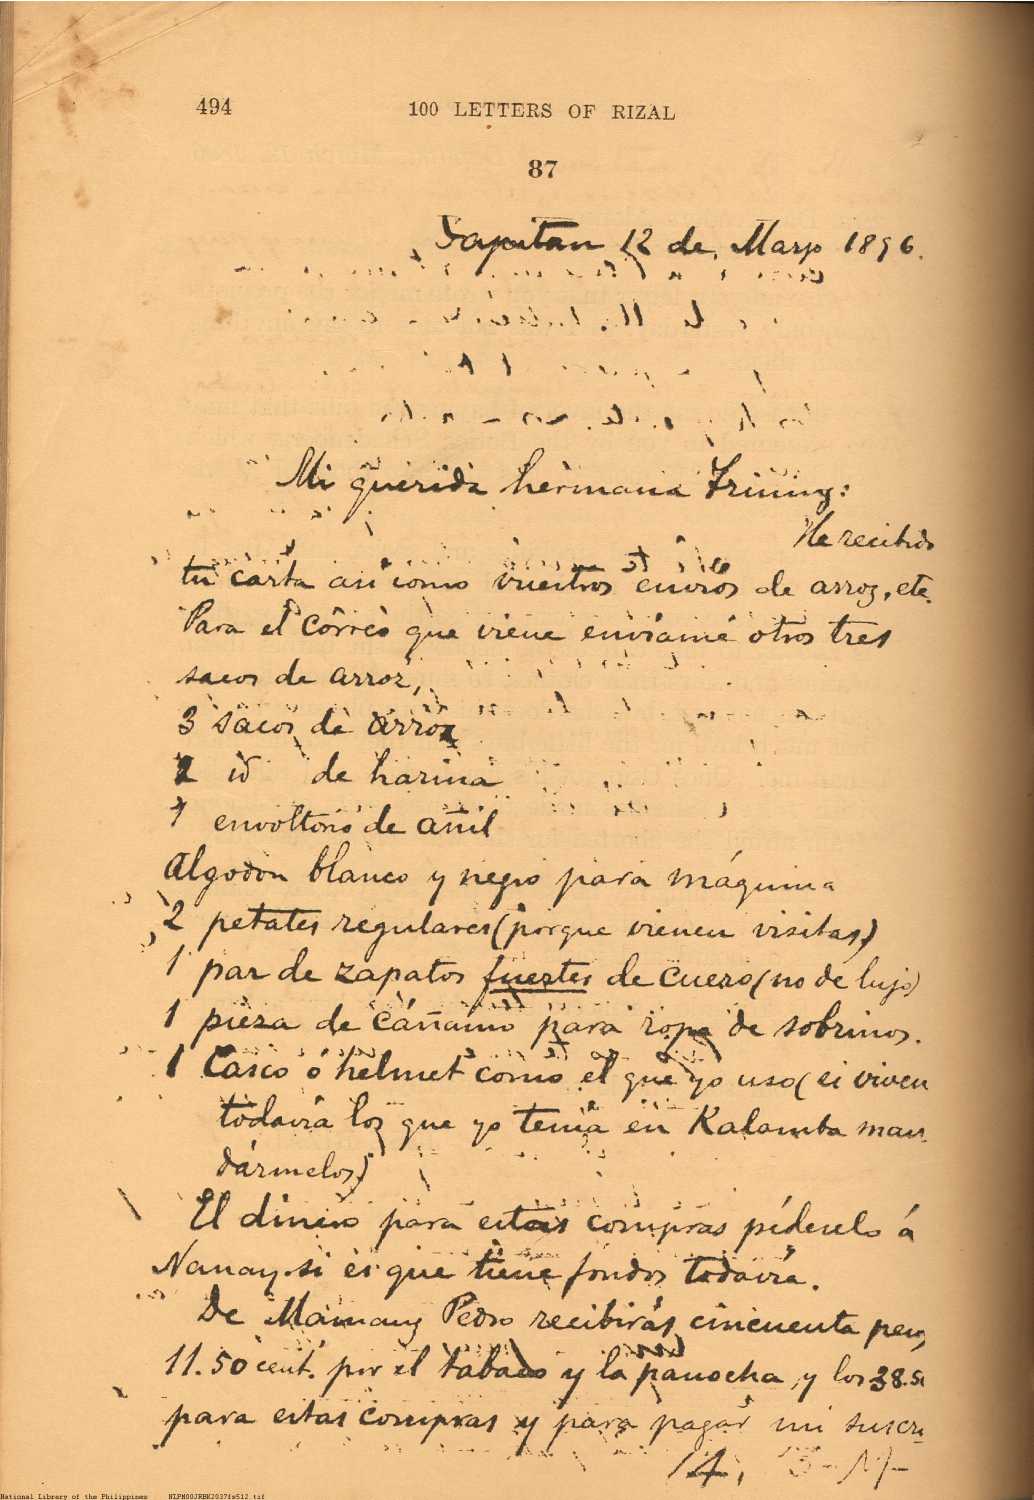 494
100 LETTERS OF RIZAL
87
Dapitan 12 de Marzo 1896.
Mi querida hermana Trining:
He recibido
tu carta asi como vuestros envios de arroz, etc.
Para el correo que viene enviame otros tres
sacos de arroz,
3 sacos de arroz
2 id de harina
1 envoltorio de añil
Algodon blanco y negro para máquina
2 petates regulares (porque vienen visitas)
1 par de zapatos fuertes de cuero (no de lujo)
1 pieza de cáñamo para ropa de sobrinos.
1 Casco ó helmet como el que yo uso (si viven
todavia los que yo tenia en Kalamba man
dármelos)
El dinero para estas compras pídeselo á
Nanay si es que tiene fondos todavia.
De Mamang Pedro recibirás cincuenta pesos,
11.50 cent. por el tabaco y la panocha, y los 38.50
para estas compras y para pagar mi suscri
National Library of the Philippines
NLPM00JRBK2037fs512.tif